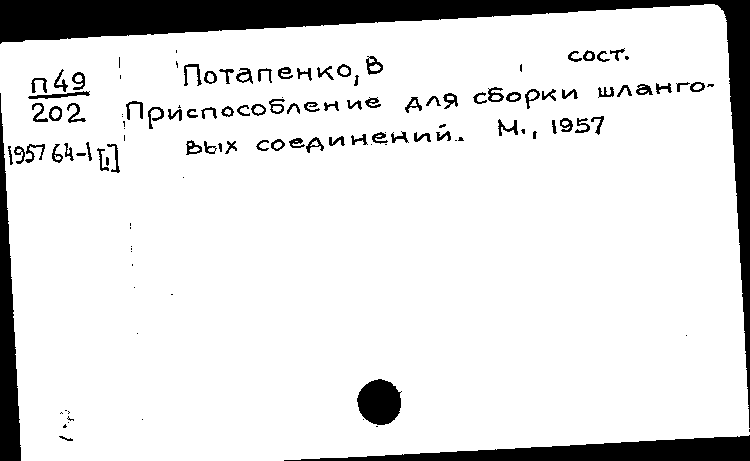 П49
202
1957 64-1 [1]
Потапенко, В , сост.
Приспособление для сборки шланго-
вых соединений. М., 1957